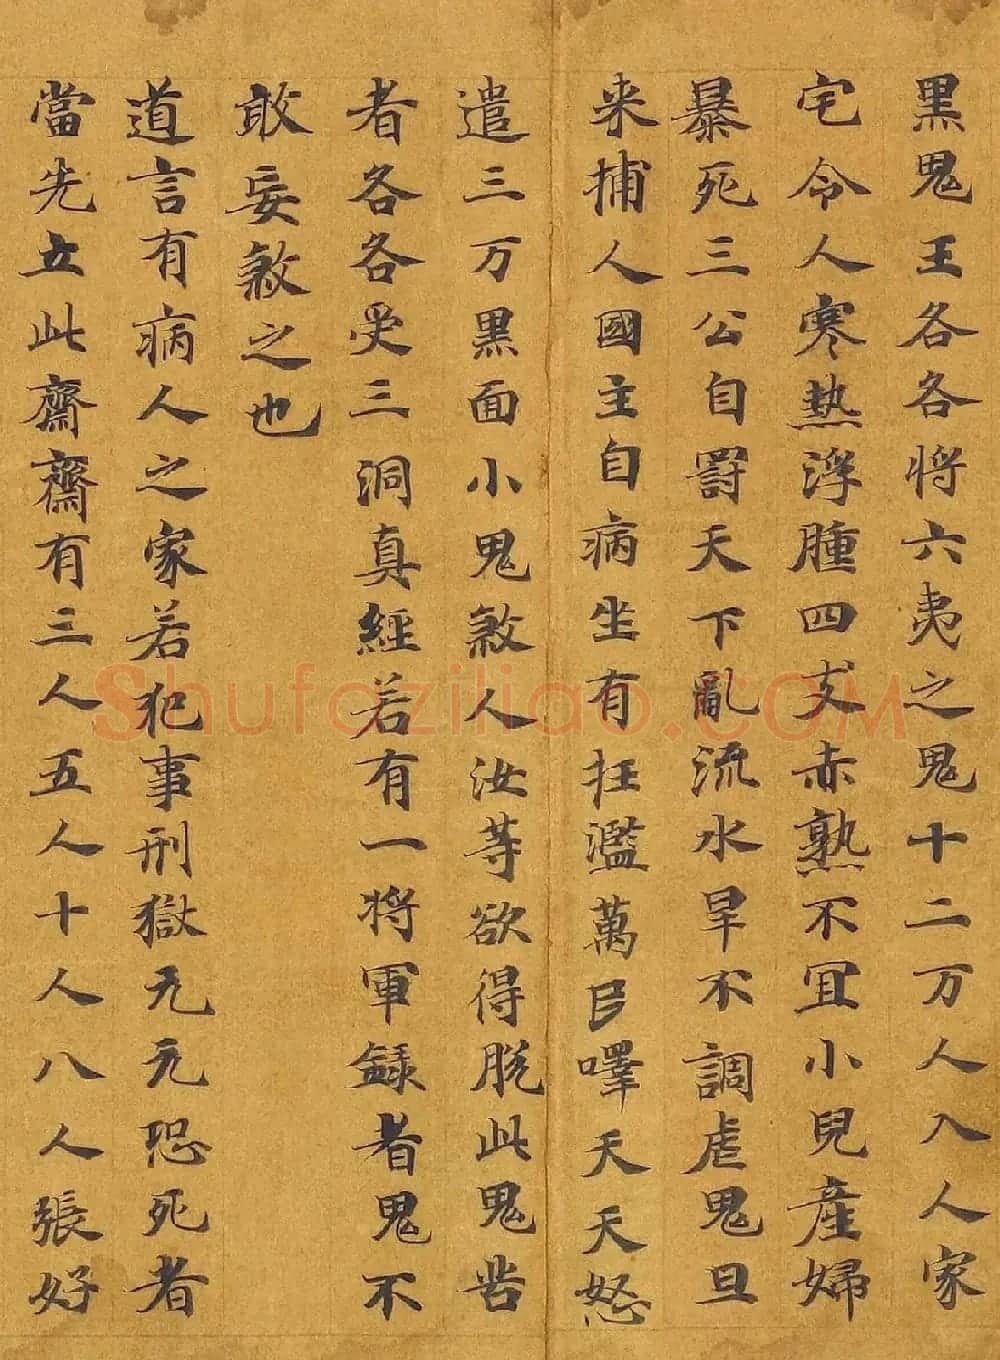 黒鬼王各各将六夷之鬼十二万人入人家
宅令人寒熱浮腫四支赤熟不冝小兒産婦
暴死三公自罸天下亂流水旱不調虐鬼旦
来捕人國主自病坐有狂濫萬民嘷天天怒
遣三万黒面小鬼煞人汝等欲得脱此鬼苦
者各各受三洞真經若有一将軍録者鬼不
敢妄煞之也
道言有病人之家若犯事刑獄元元恐死者
當先立此齋齋有三人五人十人八人張好
Shufaziliao.COM